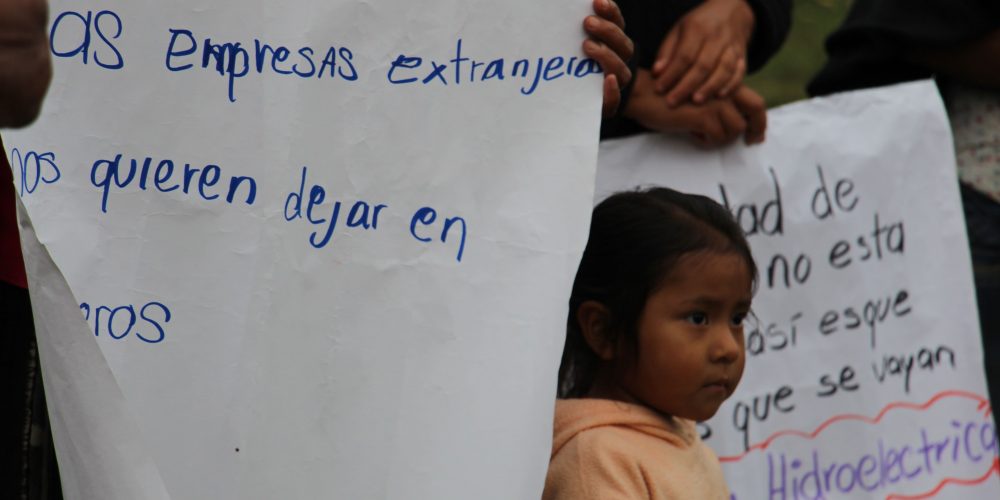 as Empresas extranjeras
nos quieren dejar en
ros
dad de
no esta
así esque
que se vayan
Hidroelectrica